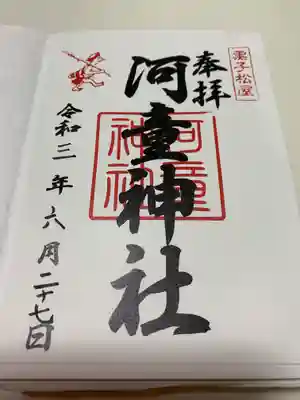 奉拝
河童神社
河童
神社
令和三年六月二十七日